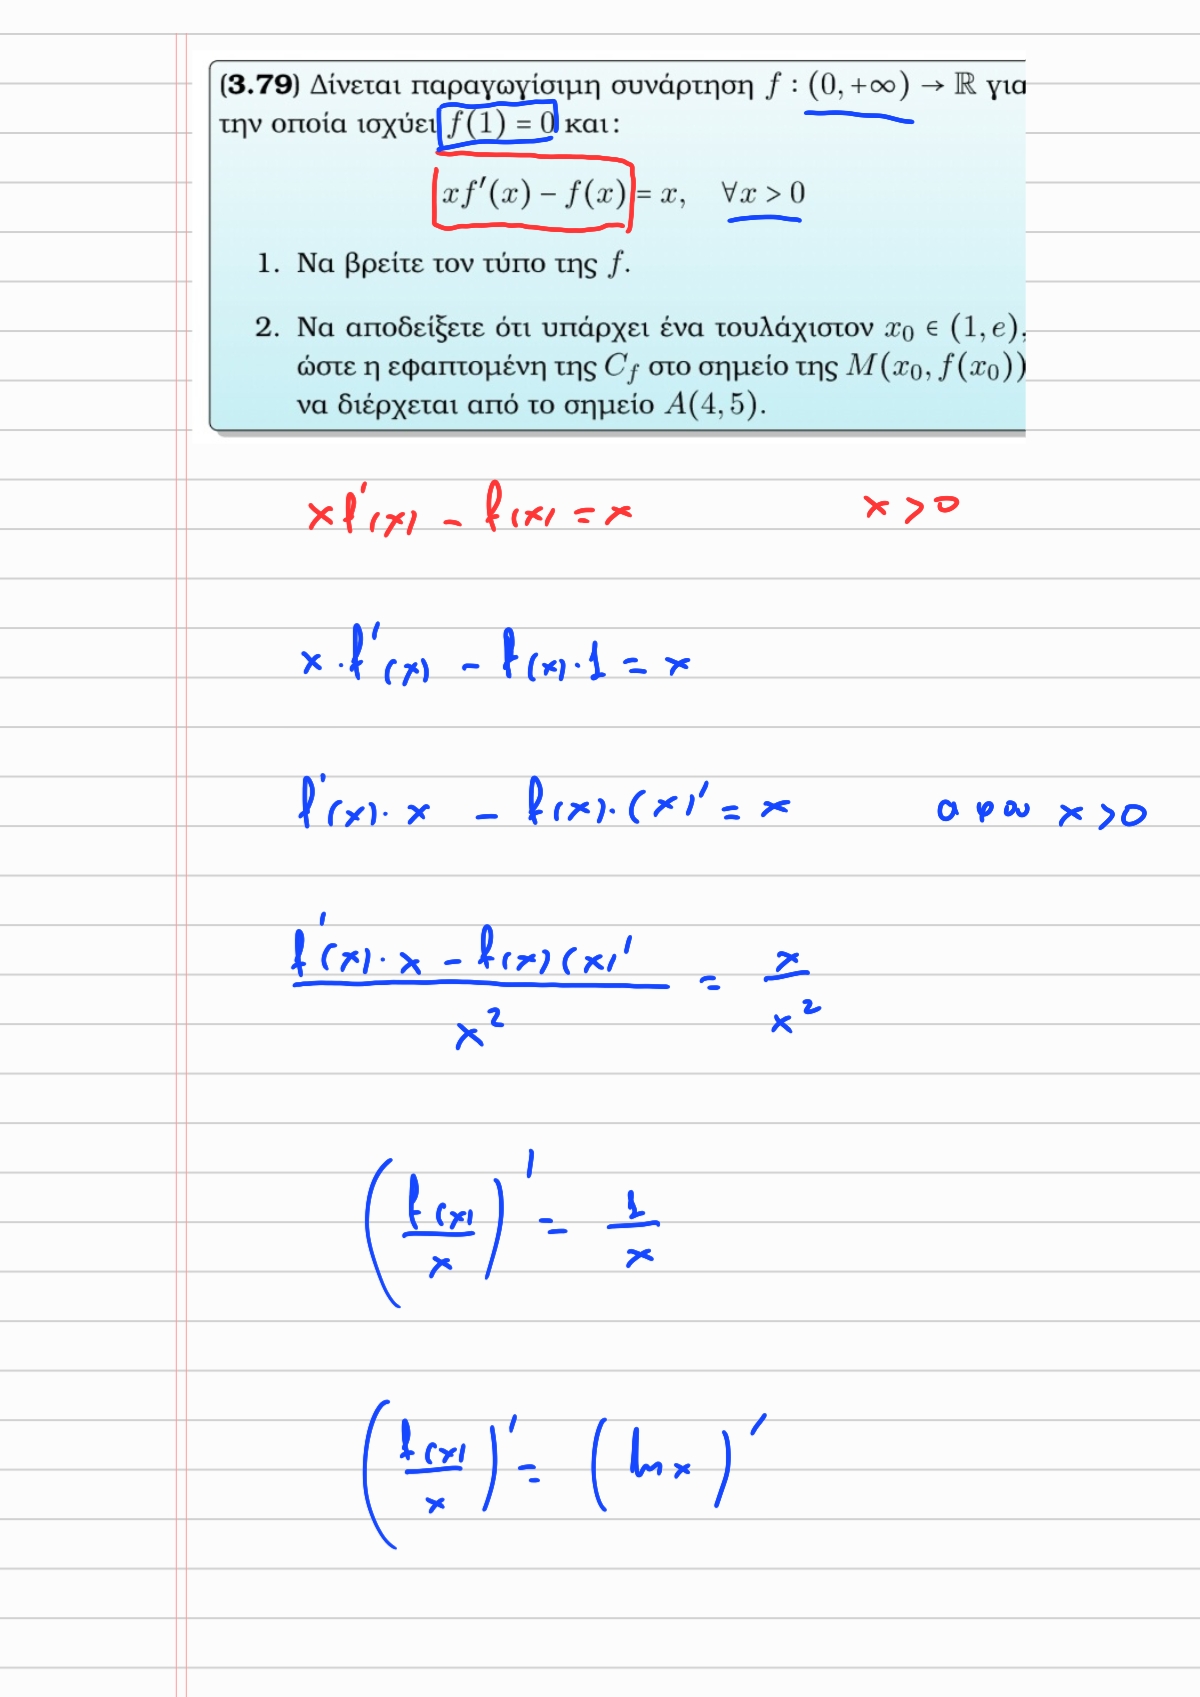 (3.79) Δίνεται παραγωγίσιμη συνάρτηση f : (0, +∞) → ℝ για
την οποία ισχύει f(1) = 0 και:
xf′(x) − f(x) = x, ∀x > 0
1. Να βρείτε τον τύπο της f.
2. Να αποδείξετε ότι υπάρχει ένα τουλάχιστον x₀ ∈ (1, e),
ώστε η εφαπτομένη της C_f στο σημείο της M(x₀, f(x₀))
να διέρχεται από το σημείο A(4, 5).
x f′(x) − f(x) = x x > 0
x · f′(x) − f(x) · 1 = x
f′(x) · x − f(x) · (x)′ = x αφου x > 0
(f′(x) · x − f(x) (x)′) / x² = x / x²
(f(x) / x)′ = 1 / x
(f(x) / x)′ = (ln x)′